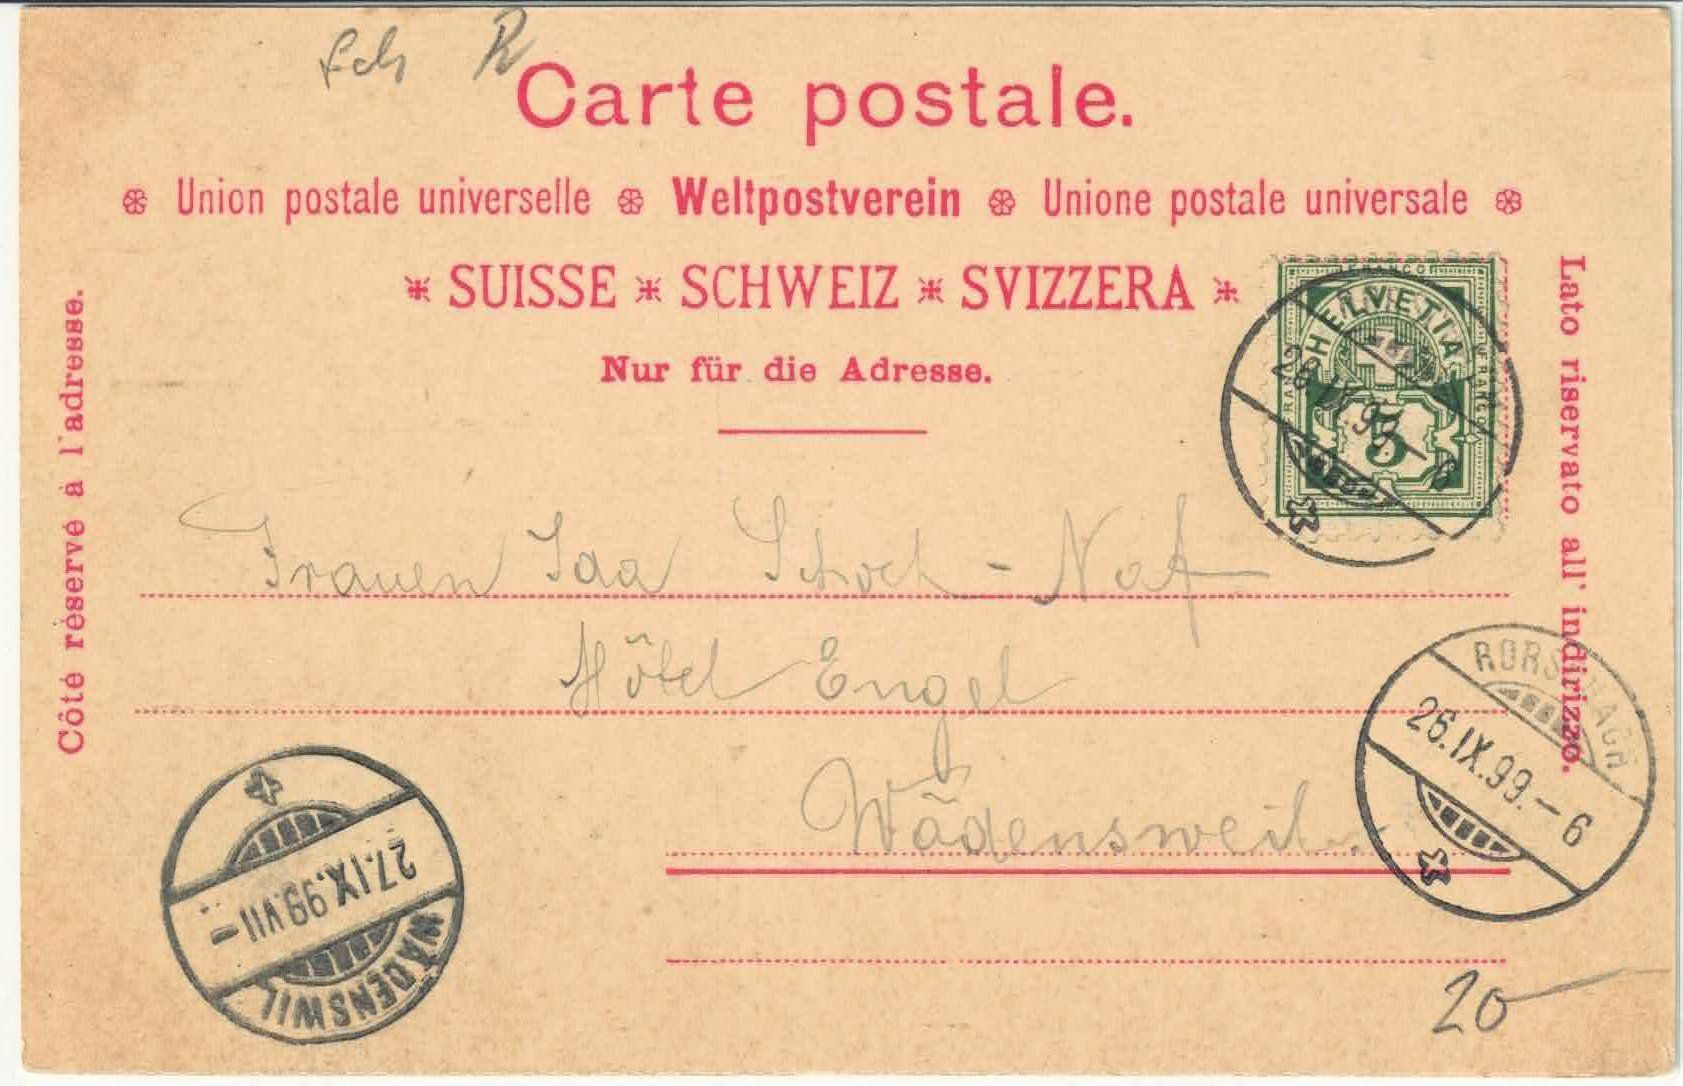 Sch R
Carte postale.
Union postale universelle Weltpostverein Unione postale universale
SUISSE SCHWEIZ SVIZZERA
Nur für die Adresse.
Côté réservé à l'adresse.
Lato riservato all' indirizzo.
FRANCO
HELVETIA
5
26.IX.99.-6
Frauen Ida Schoch-Näf
Hôtel Engel
Wädensweil
RORSCHACH
26.IX.99.-6
27.IX.99.VII-
WÄDENSWIL
20